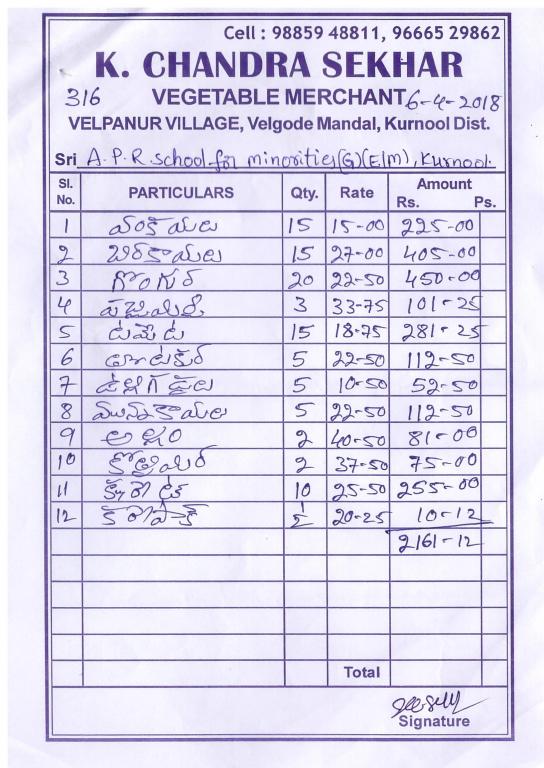 Cell : 98859 48811, 96665 29862
K. CHANDRA SEKHAR
316 VEGETABLE MERCHANT 6-4-2018
VELPANUR VILLAGE, Velgode Mandal, Kurnool Dist.
Sri A.P.R. school for minorities(G)(E/m), Kurnool.
Sl. No. PARTICULARS Qty. Rate Amount Rs. Ps.
1 వంకాయలు 15 15-00 225-00
2 బీరకాయలు 15 27-00 405-00
3 గోంగూర 20 22-50 450-00
4 పచ్చిమిర్చి 3 33-75 101-25
5 టమేట 15 18-75 281-25
6 5 22-50 112-50
7 ఉల్లిగడ్డలు 5 10-50 52-50
8 మునక్కాయలు 5 22-50 112-50
9 అల్లం 2 40-50 81-00
10 కొత్తిమీర 2 37-50 75-00
11 క్యారెట్ 10 25-50 255-00
12 కరేపాక్ ½ 20-25 10-12
2161-12
Total
Signature